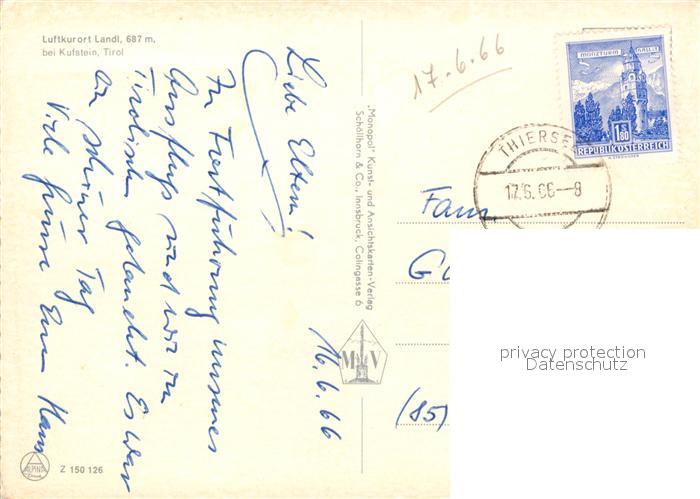 Luftkurort Landl, 687 m,
bei Kufstein, Tirol
16.6.66
Liebe Eltern!
In Fortführung unseres
Ausflugs sind wir in
Tirolisch gelandet. Es war
ein schöner Tag
Viele Grüsse Euer Hans
Z 150 126
"Monopol" Kunst- und Ansichtskarten-Verlag
Schöllhorn & Co., Innsbruck, Colingasse 6
M V
17.6.66
MÜNZTURM HALL I.T.
1.80
REPUBLIK ÖSTERREICH
THIERSEE
17.6.66--8
Fam.
(85)
privacy protection
Datenschutz